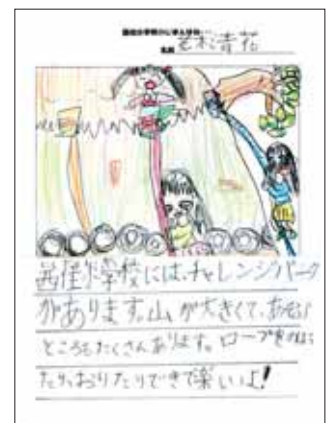 西佳小学校には、チャレンジパーク
があります。山が大きくて、あそぶ
ところもたくさんあります。ロープを
たり、おりたりできて楽しいよ!